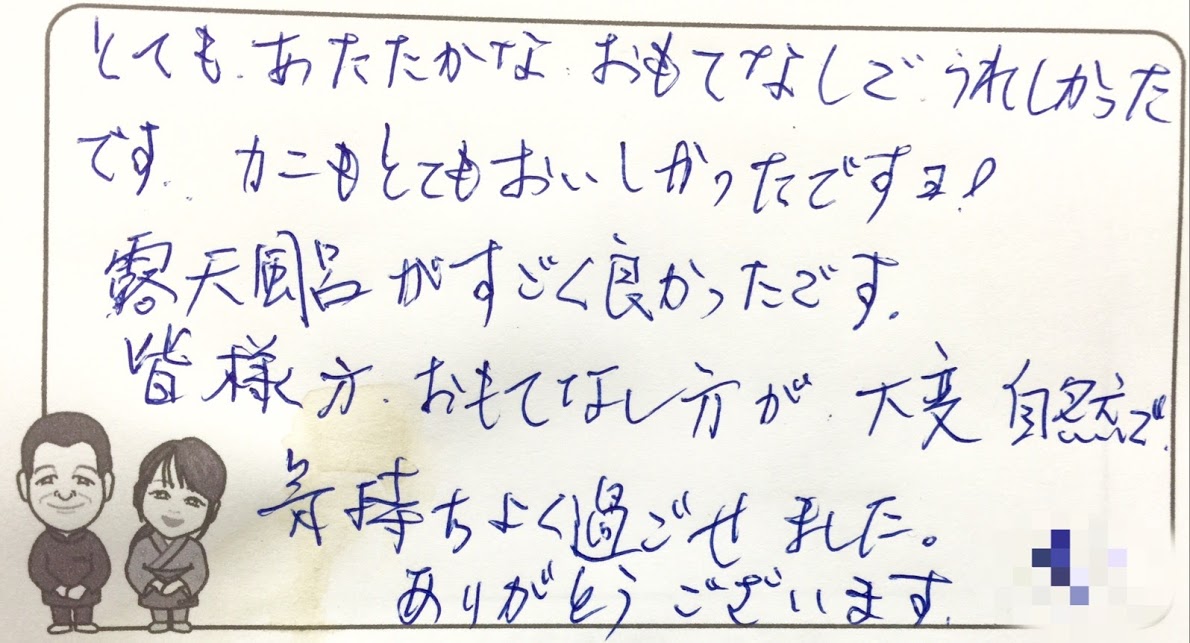 とても、あたたかな、おもてなしで、うれしかった
です。カニもとてもおいしかったですヨ!
露天風呂がすごく良かったです。
皆様方、おもてなし方が、大変自然で、
気持ちよく過ごせました。
ありがとうございます。